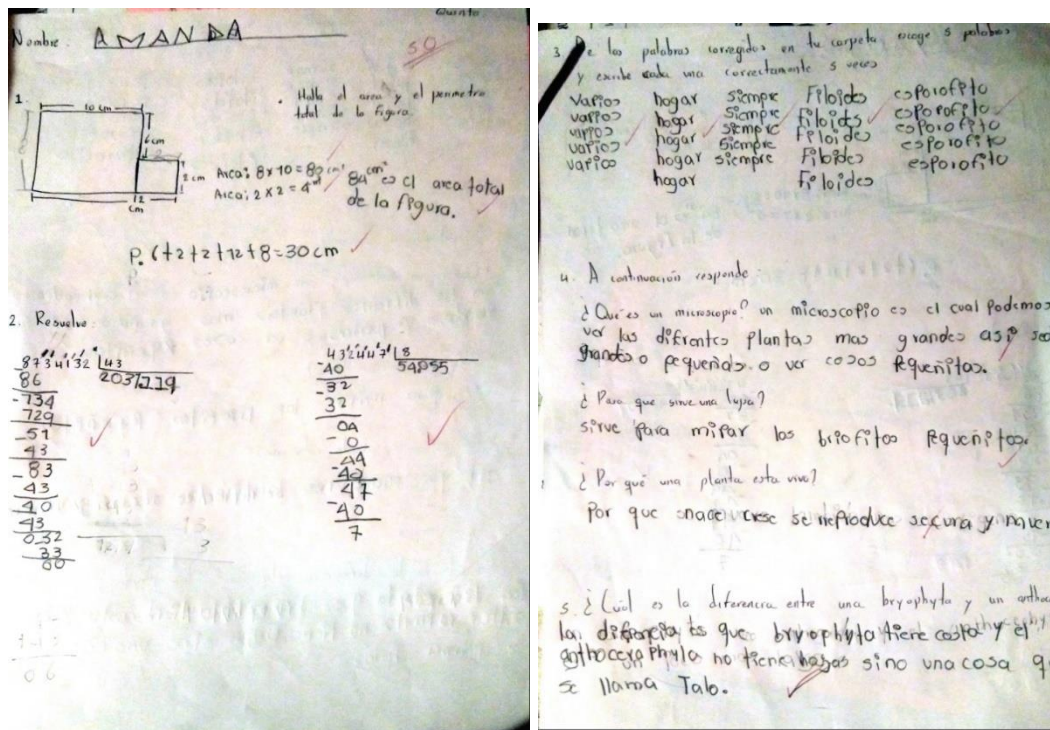 Quinto.
Nombre: AMANDA
50
1.
10 cm
6 cm
2
2 cm
12
cm
• Halla el area y el perimetro
total de la figura.
Area: 8 x 10 = 80 cm²
Area: 2 x 2 = 4
84 cm² es el area total
de la figura.
P. 6+2+2+12+8=30 cm
2. Resuelve:
87341132 43
86
-734
729
-51
43
-83
43
40
43
032
33
00
8
54055
-40
32
32
04
-0
44
-40
47
-40
7
3. De las palabras corregidas en tu carpeta escoge 5 palabras
y escribe cada una correctamente 5 veces
varios hogar siempre Filoides esporofito
varios hogar siempre Filoides esporofito
varios hogar siempre Filoides esporofito
varios hogar siempre Filoides esporofito
varios hogar siempre Filoides esporofito
hogar Filoides
4. A continuación responde:
¿Qué es un microscopio? un microscopio es el cual Podemos
ver las difrentes plantas mas grandes asi sea
grandes o pequeñas. o ver cosas Pequeñitas.
¿Para que sirve una lupa?
sirve para mirar las briofitas Pequeñitas.
¿Por qué una planta esta viva?
Por que nace crese se reproduce se cura y muer
5. ¿Cuál es la diferencia entre una bryophyta y un antho
la diferencia es que bryophyta tiene costa y el
anthocerophyla no tiene hojas sino una cosa q
se llama Talo.